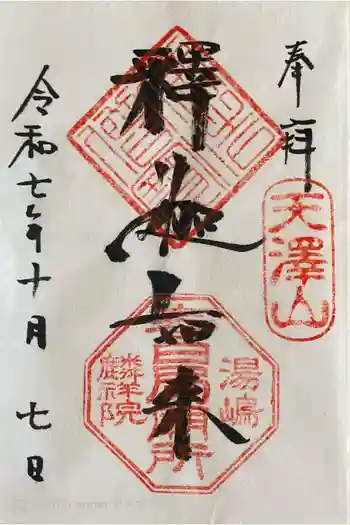 奉拝
天澤山
釋迦如来
湯嶋
麟祥院
令和七年十月七日